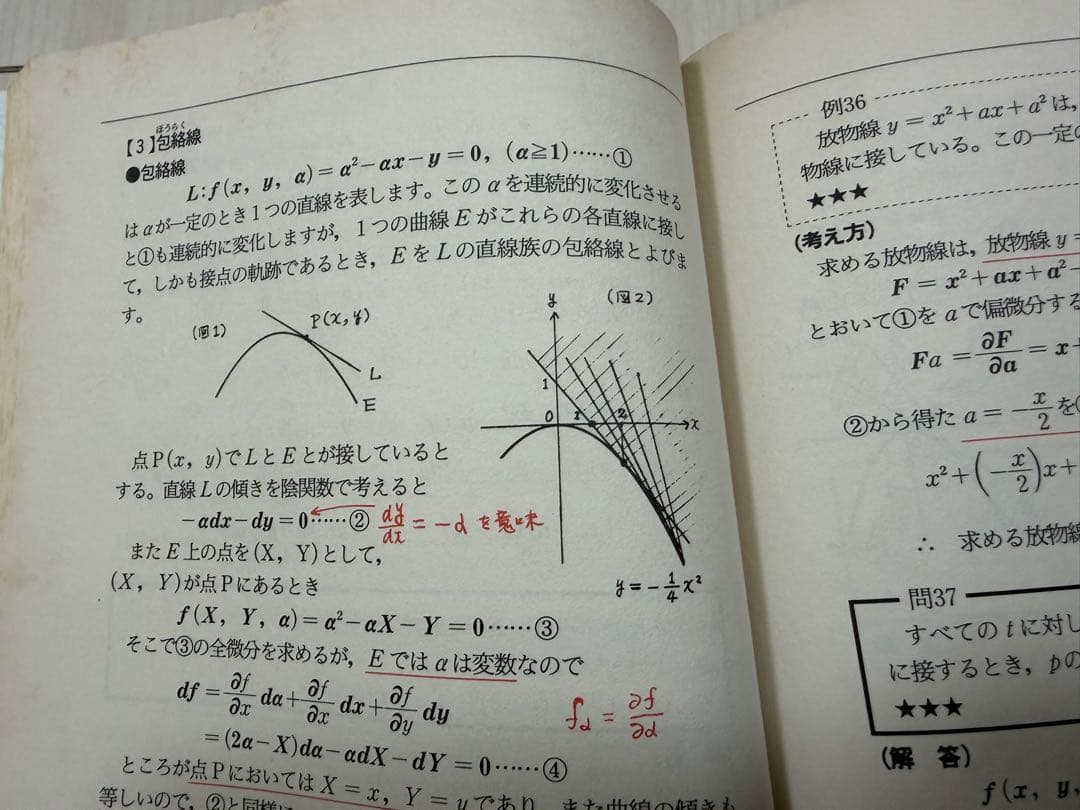 【3】包絡線
ほうらく
●包絡線
L:f(x, y, α)=α²−αx−y=0, (α≧1)……①
はαが一定のとき1つの直線を表します。このαを連続的に変化させる
と①も連続的に変化しますが，1つの曲線Eがこれらの各直線に接し
て，しかも接点の軌跡であるとき，EをLの直線族の包絡線とよびま
す。
(図1)
P(x, y)
L
E
(図2)
y
1
0
1
2
x
y=−1/4 x²
点P(x, y)でLとEとが接していると
する。直線Lの傾きを陰関数で考えると
−αdx−dy=0……② dy/dx=−α を意味
またE上の点を(X, Y)として，
(X, Y)が点Pにあるとき
f(X, Y, α)=α²−αX−Y=0……③
そこで③の全微分を求めるが，Eではαは変数なので
df=∂f/∂x dα+∂f/∂x dx+∂f/∂y dy
fα=∂f/∂α
=(2α−X)dα−αdX−dY=0……④
ところが点PにおいてはX=x, Y=yであり，また曲線の傾きも
等しいので，②と同様に
例36
放物線 y=x²+ax+a² は，
物線に接している。この一定の
★★★
(考え方)
求める放物線は，放物線 y=
F=x²+ax+a²−
とおいて①をaで偏微分する
Fa=∂F/∂a=x+
②から得た a=−x/2 を
x²+(−x/2)x+
∴ 求める放物線
問37
すべてのtに対し
に接するとき，pの
★★★
(解 答)
f(x, y,